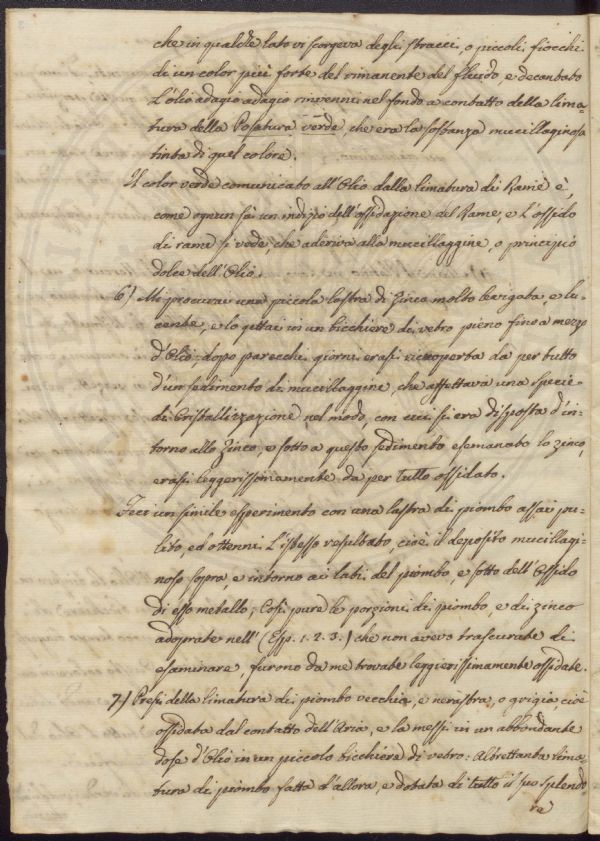 che in qualche lato vi scorgeva degli stracci, o piccoli fiocchi
di un color più forte del rimanente del fluido, e decantato
L'olio adagio adagio rinvenni nel fondo a contatto della lima=
tura della Posatura verde, che era la sostanza mucillaginosa
tinta di quel colore.
Il color verde comunicato all'Olio dalla limatura di Rame è,
come ognun sà un indizio dell'ossidazione del Rame, e L'ossido
di rame si vede, che aderiva alla mucillaggine, o principio
dolce dell'Olio.
6.) Mi procurai una piccola lastra di Zinco molto levigata, e lu=
cente, e lo gettai in un bicchiere di vetro pieno fino a mezzo
d'Olio; dopo parecchi giorni erasi ricoperta da per tutto
d'un sedimento di mucillaggine, che affettava una specie
di Cristallizzazione nel modo, con cui si era disposta d'in=
torno allo Zinco, e sotto a questo sedimento esaminato lo zinco,
erasi leggerissimamente da per tutto ossidato.
Feci un simile esperimento con una lastra di piombo assai pu=
lito, ed ottenni L'istesso resultato, cioè il deposito mucillagi=
noso sopra, e intorno ai lati del piombo, e sotto dell'Ossido
di esso metallo; Così pure le porzioni di piombo, e di zinco
adoprate nell'(Esp. 1. 2. 3.) che non avevo trascurate di
esaminare, furono da me trovate leggierissimamente ossidate.
7.) Presi della limatura di piombo vecchia, e nerastra, o grigia cioè
ossidata dal contatto dell'Aria, e la messi in un abbondante
dose d'Olio in un piccolo bicchiere di vetro: Altrettanta lima=
tura di piombo fatta d'allora, e dotata di tutto il suo splendo=
re